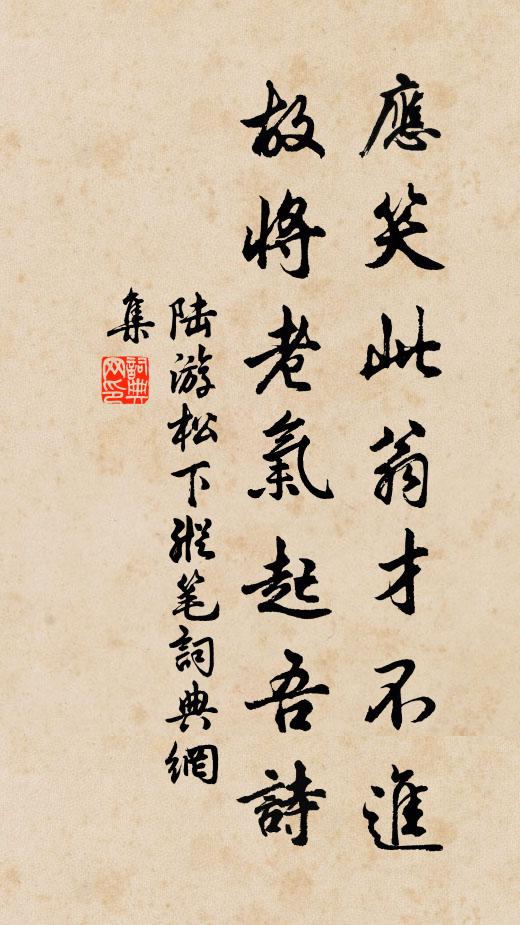 應笑此翁才不進
故將老氣起吾詩
陆游松下縱笔詞典網
集
詞典
网印